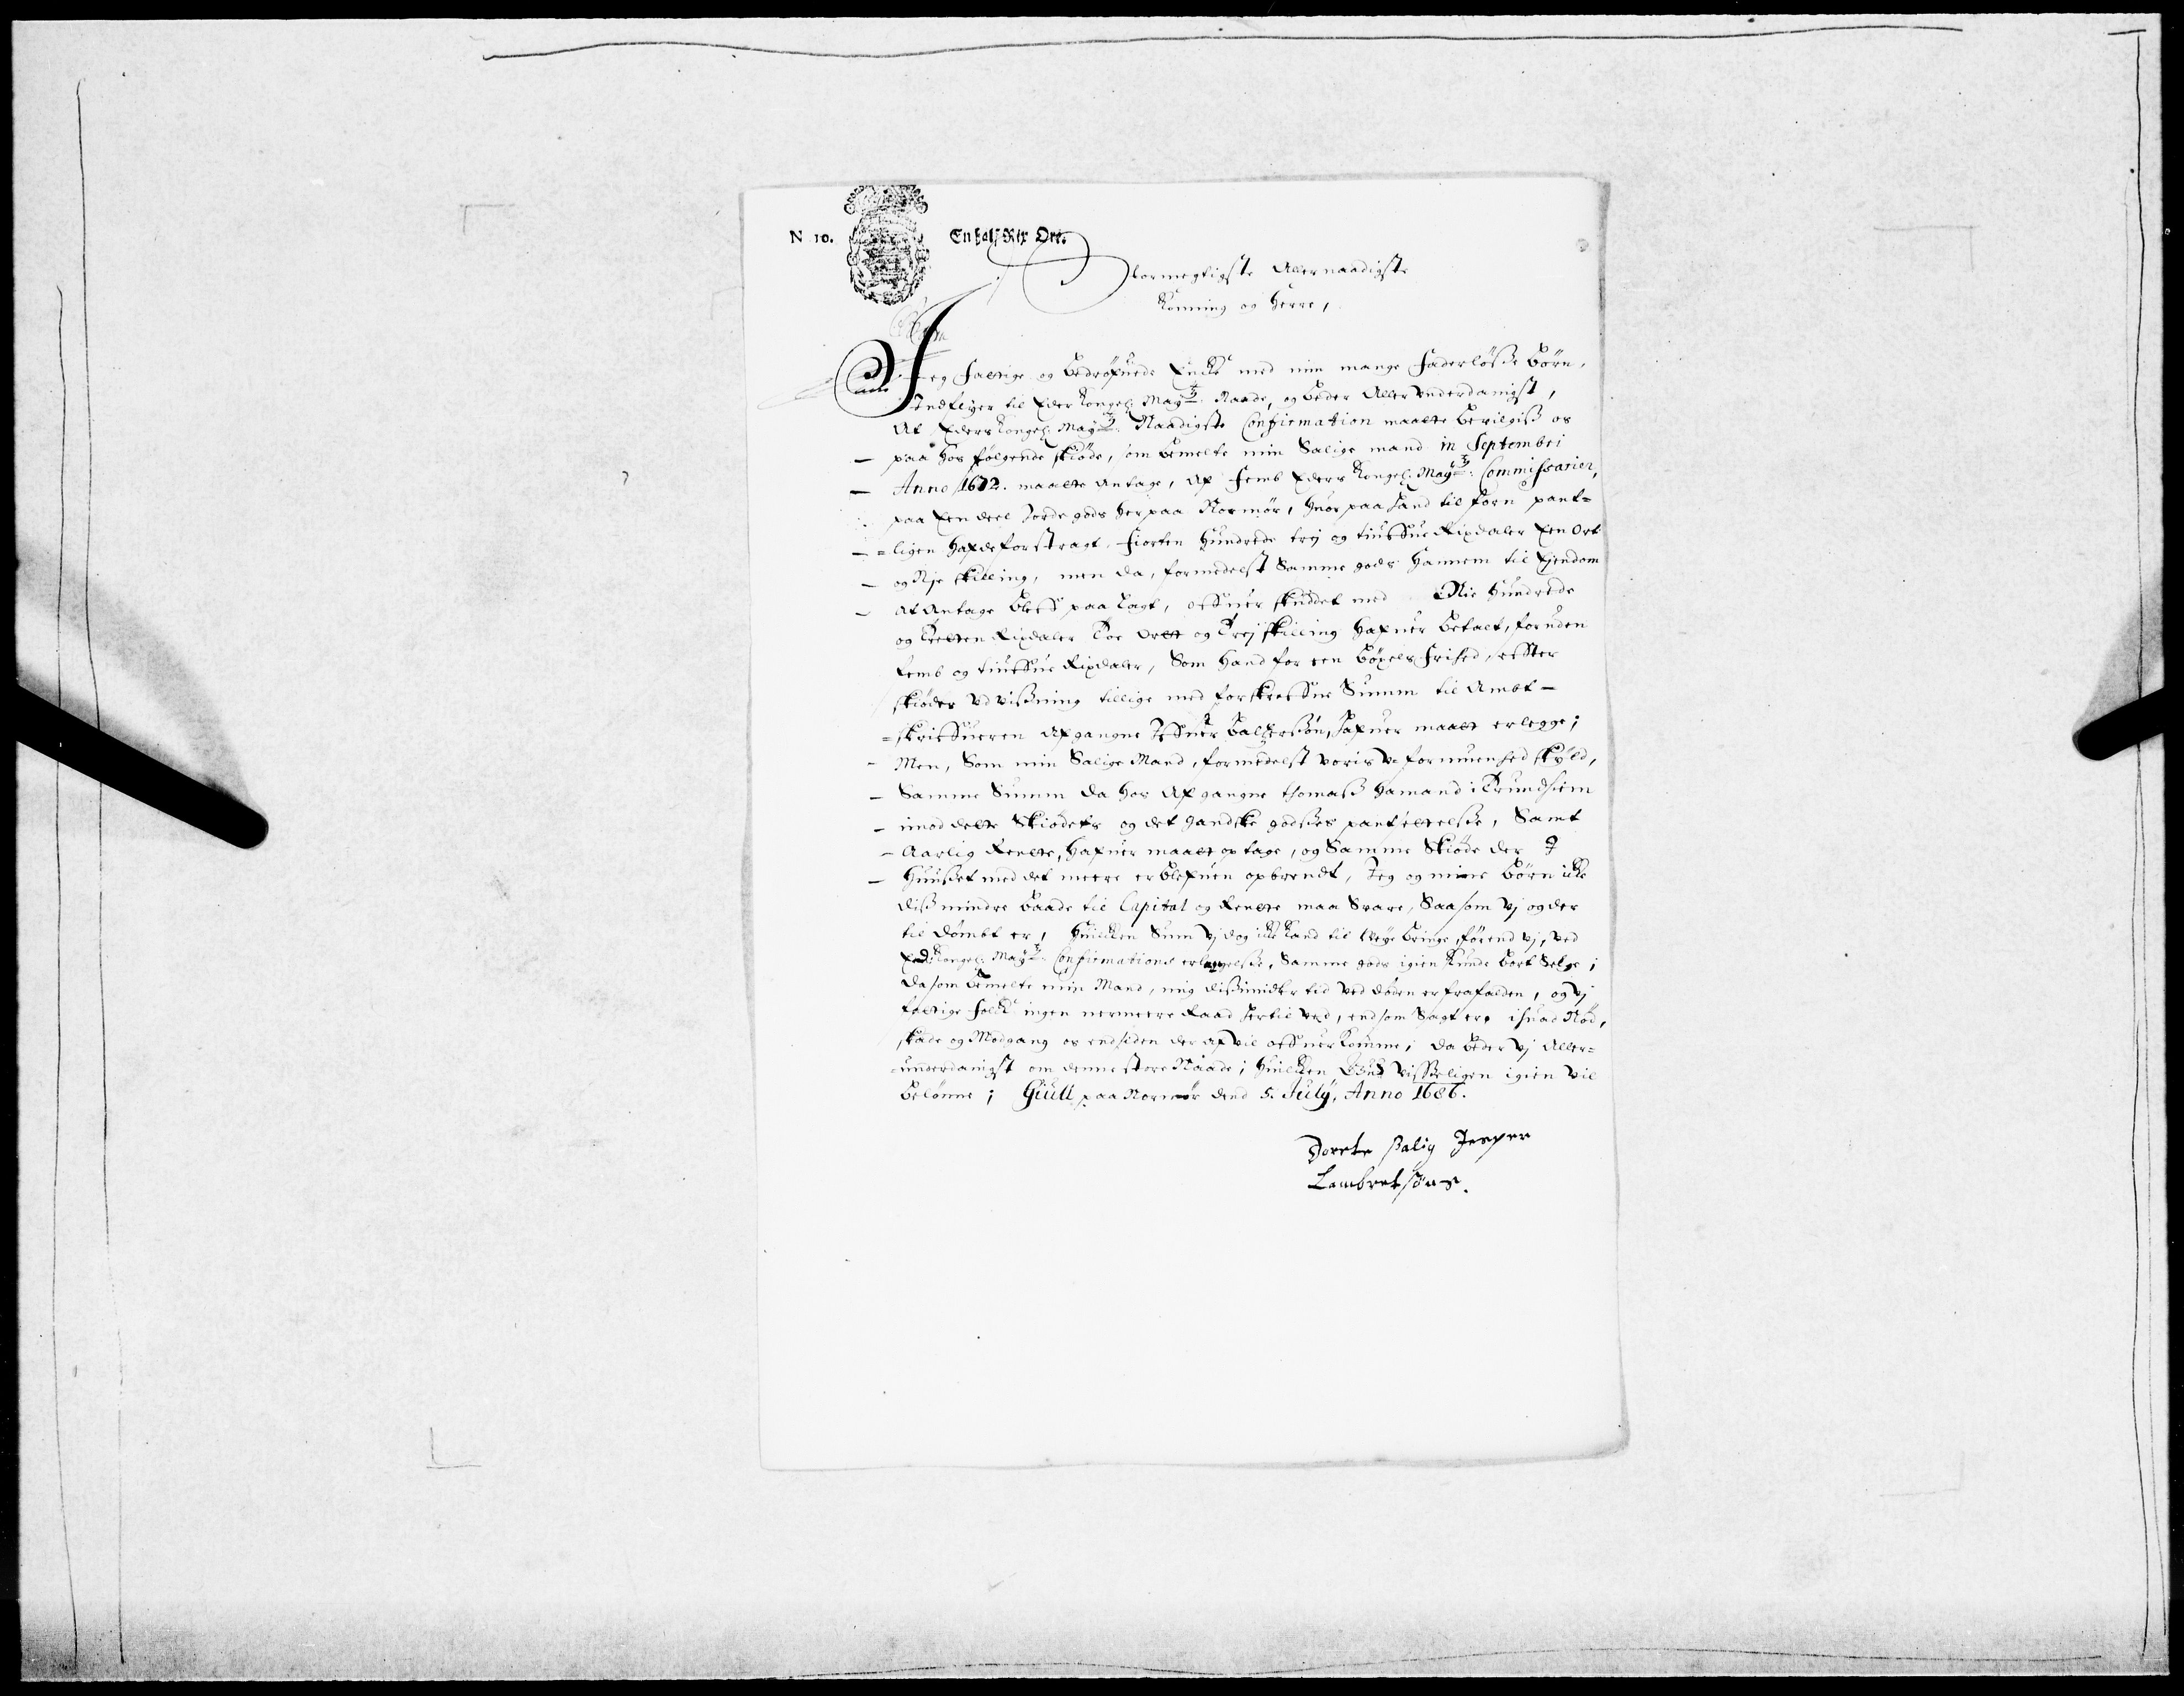 N 10. En halff Rix Ort.
Stormegtigste Aller naadigste
Konning og Herre,
Jeg fattige og bedröfuede Encke med min mange faderlösse börn,
Indflyer til Eder Kongel: May:tz Naade, og beder Aller underdanigst,
At Eders Kongel: May:tz Naadigste Confirmation maatte bevilgiss os
paa hos følgende skiöde, som bemelte min Salige mand in Septembri
Anno 1672. maatte Antage, af femb Eders Kongel: May:tz Commissarier,
paa Een deel Jorde gods her paa Normör, huor paa hand tilforn pant=
=ligen hafde forstragt, fiorten hundrede trej og tiufue Rixdaler Een Ort
og Nje skilling, men da, formedelst Samme gods hannem til Eyendom
at Antage blef paa lagt, ofuer skuddet med Nie hundrede
og Tretten Rixdaler Toe Ortt og Trej skilling hafuer betalt, foruden
femb og tiufue Rixdaler, Som hand for een böxels frihed, efter
skiödes ud vissning tillige med forskrefne Summ til Ambt=
=skrifueren afgangne Ifuer Baltzersön, hafuer maatt erlegge;
Men, Som min Salige Mand, formedelst voris uformuenhed skyld,
Samme Summ da hos afgangne Thomass Hamand i Trundhiem
imod dette Skiödets og det gandske godses pantsettelsse, Samt
Aarlig Rentte, hafuer maatt optage, og Samme Skiöde der I
Huusset med det meere er blefuen opbrendt, Jeg og mine börn icke
diss mindre baade til Capital og Rentte maa Svare, Saasom vj og der
til dömbt er, huilcken Sum vj dog icke kand til Weye bringe, förend vj, ved
Eders Kongel: May:tz Confirmations erlangelsse, Samme gods igien kunde bort Selge;
da som bemelte min Mand, mig dissimidler tid ved döden er frafalden, og vj
fattige folck ingen nermeere Raad hertil veed, end som Sagt er, i huad Nöd,
skade og Modgang os endsiden der af vil ofuerkomme; da beder vj Aller=
=underdanigst om denne store Naade; huilcken Gud visseligen igien vil
belönne; Giull paa Normör dend 5. July, Anno 1686.
Dorete Salig Jesper
Lambretsöns.